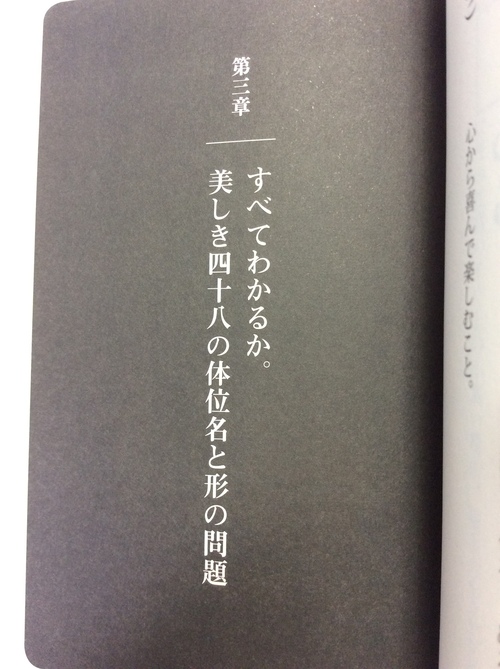 第三章
すべてわかるか。
美しき四十八の体位名と形の問題
ン
心から喜んで楽しむこと。